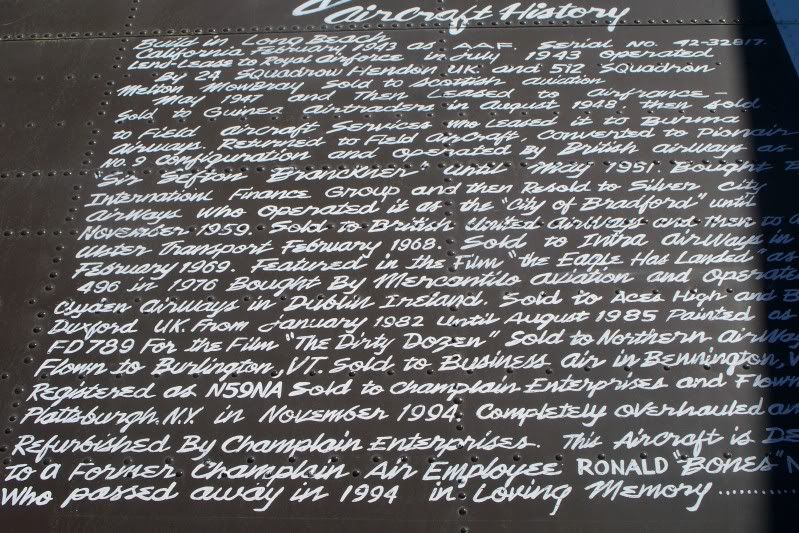 Aircraft History
Build in Long Beach
California February 1943 as A A F. Serial No. 42-32817.
Lend Lease to Royal Airforce in July 1943 operated
By 24 Squadron Hendon U.K. and 512 Squadron
Melton Mowbray Sold to Scottish aviation
May 1947 and Then Leased to Airfrance -
Sold to Guinea Airtraders in August 1948. then sold
to Field Aircraft Services who Leased it to Burma
Airways. Returned to Field Aircraft. Converted to Pionair
No. 9 configuration and operated by British airways as
"Sir Sefton Branckner" until May 1951. Bought
International Finance Group and then Resold to Silver City
airways who operated it as the "City of Bradford" until
November 1959. Sold to British United Airways and then to
ulster Transport February 1968. Sold to Intra airways in
February 1969. Featured in the Film "the Eagle Has Landed" as
496 in 1976 Bought By Mercantilo aviation and operate
Clyden airways in Dublin Ireland. Sold to Aces High and B
Duxford U.K. From January 1982 until August 1985 Painted as
FD789 For the Film "The Dirty Dozen" Sold to Northern airway
Flown to Burlington, VT. Sold to Business air in Bennington, V
Registered as N59NA Sold to Champlain Enterprises and Flown
Plattsburgh. N.Y. in November 1994. Completely overhauled an
Refurbished By Champlain Enterprises. This Aircraft is DE
to a Former Champlain Air Employee RONALD "BONES" N
Who passed away in 1994 in Loving Memory..............